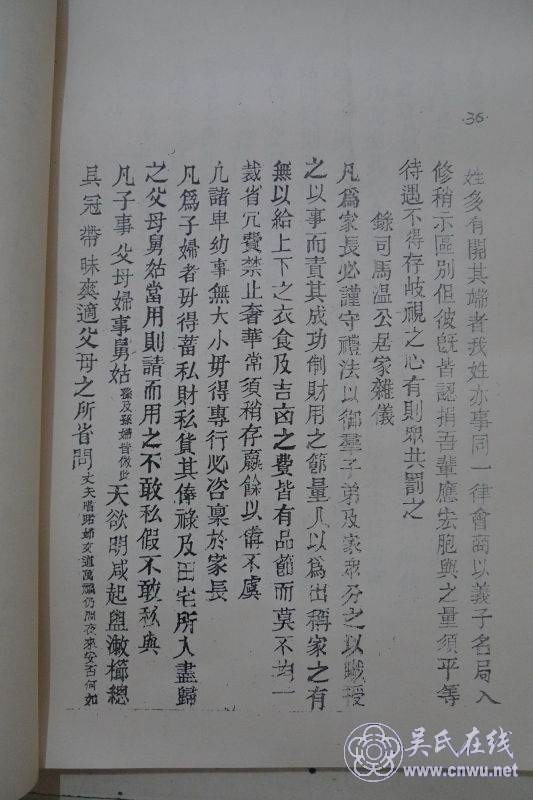 ·36·
姓多有開其端者我姓亦事同一律會商以義子名局入
修稍示區別但彼旣皆認捐吾輩應宏胞與之量須平等
待遇不得存歧視之心有則眾共罰之
錄司馬溫公居家雜儀
凡爲家長必謹守禮法以御羣子弟及家眾分之以職授
之以事而責其成功制財用之節量入以爲出稱家之有
無以給上下之衣食及吉凶之費皆有品節而莫不均一
裁省冗費禁止奢華常須稍存贏餘以備不虞
凡諸卑幼事無大小毋得專行必咨稟於家長
凡爲子婦者毋得蓄私財私貨其俸祿及田宅所入盡歸
之父母舅姑當用則請而用之不敢私假不敢私與
凡子事父母婦事舅姑孫及孫婦皆倣此天欲明咸起盥漱櫛總
具冠帶昧爽適父母之所省問丈夫唱喏婦女道萬福仍問夜來安否何如
吴氏在线
www.cnwu.net